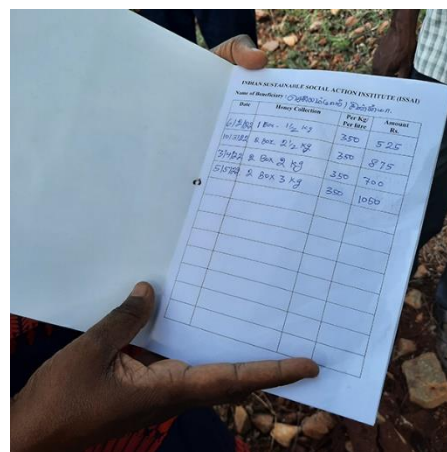 INDIAN SUSTAINABLE SOCIAL ACTION INSTITUTE (ISSAI)
Name of Beneficiary :
Date Honey Collection Per Kg/ Per litre Amount Rs.
6/3/22 1 Box - 1½ kg 350 525
10/3/22 2 Box 2½ kg 350 875
3/4/22 2 Box 2 kg 350 700
5/5/22 2 Box 3 kg 350 1050